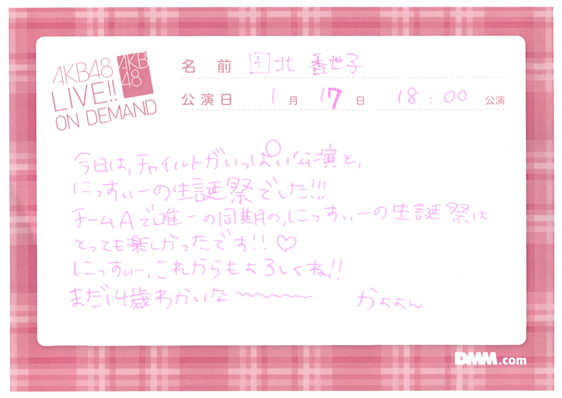 AKB48
LIVE!!
ON DEMAND
AKB
48
名前 田北 香世子
公演日 1月 17日 18:00 公演
今日は、チャイルドがいっぱい公演と、
にっすぃーの生誕祭でした!!!
チームAで唯一の同期の、にっすぃーの生誕祭は
とっても楽しかったです!!♡
にっすぃー、これからもよろしくね!!
まだ14歳わかいな〜〜〜〜〜
かよよん
DMM.com